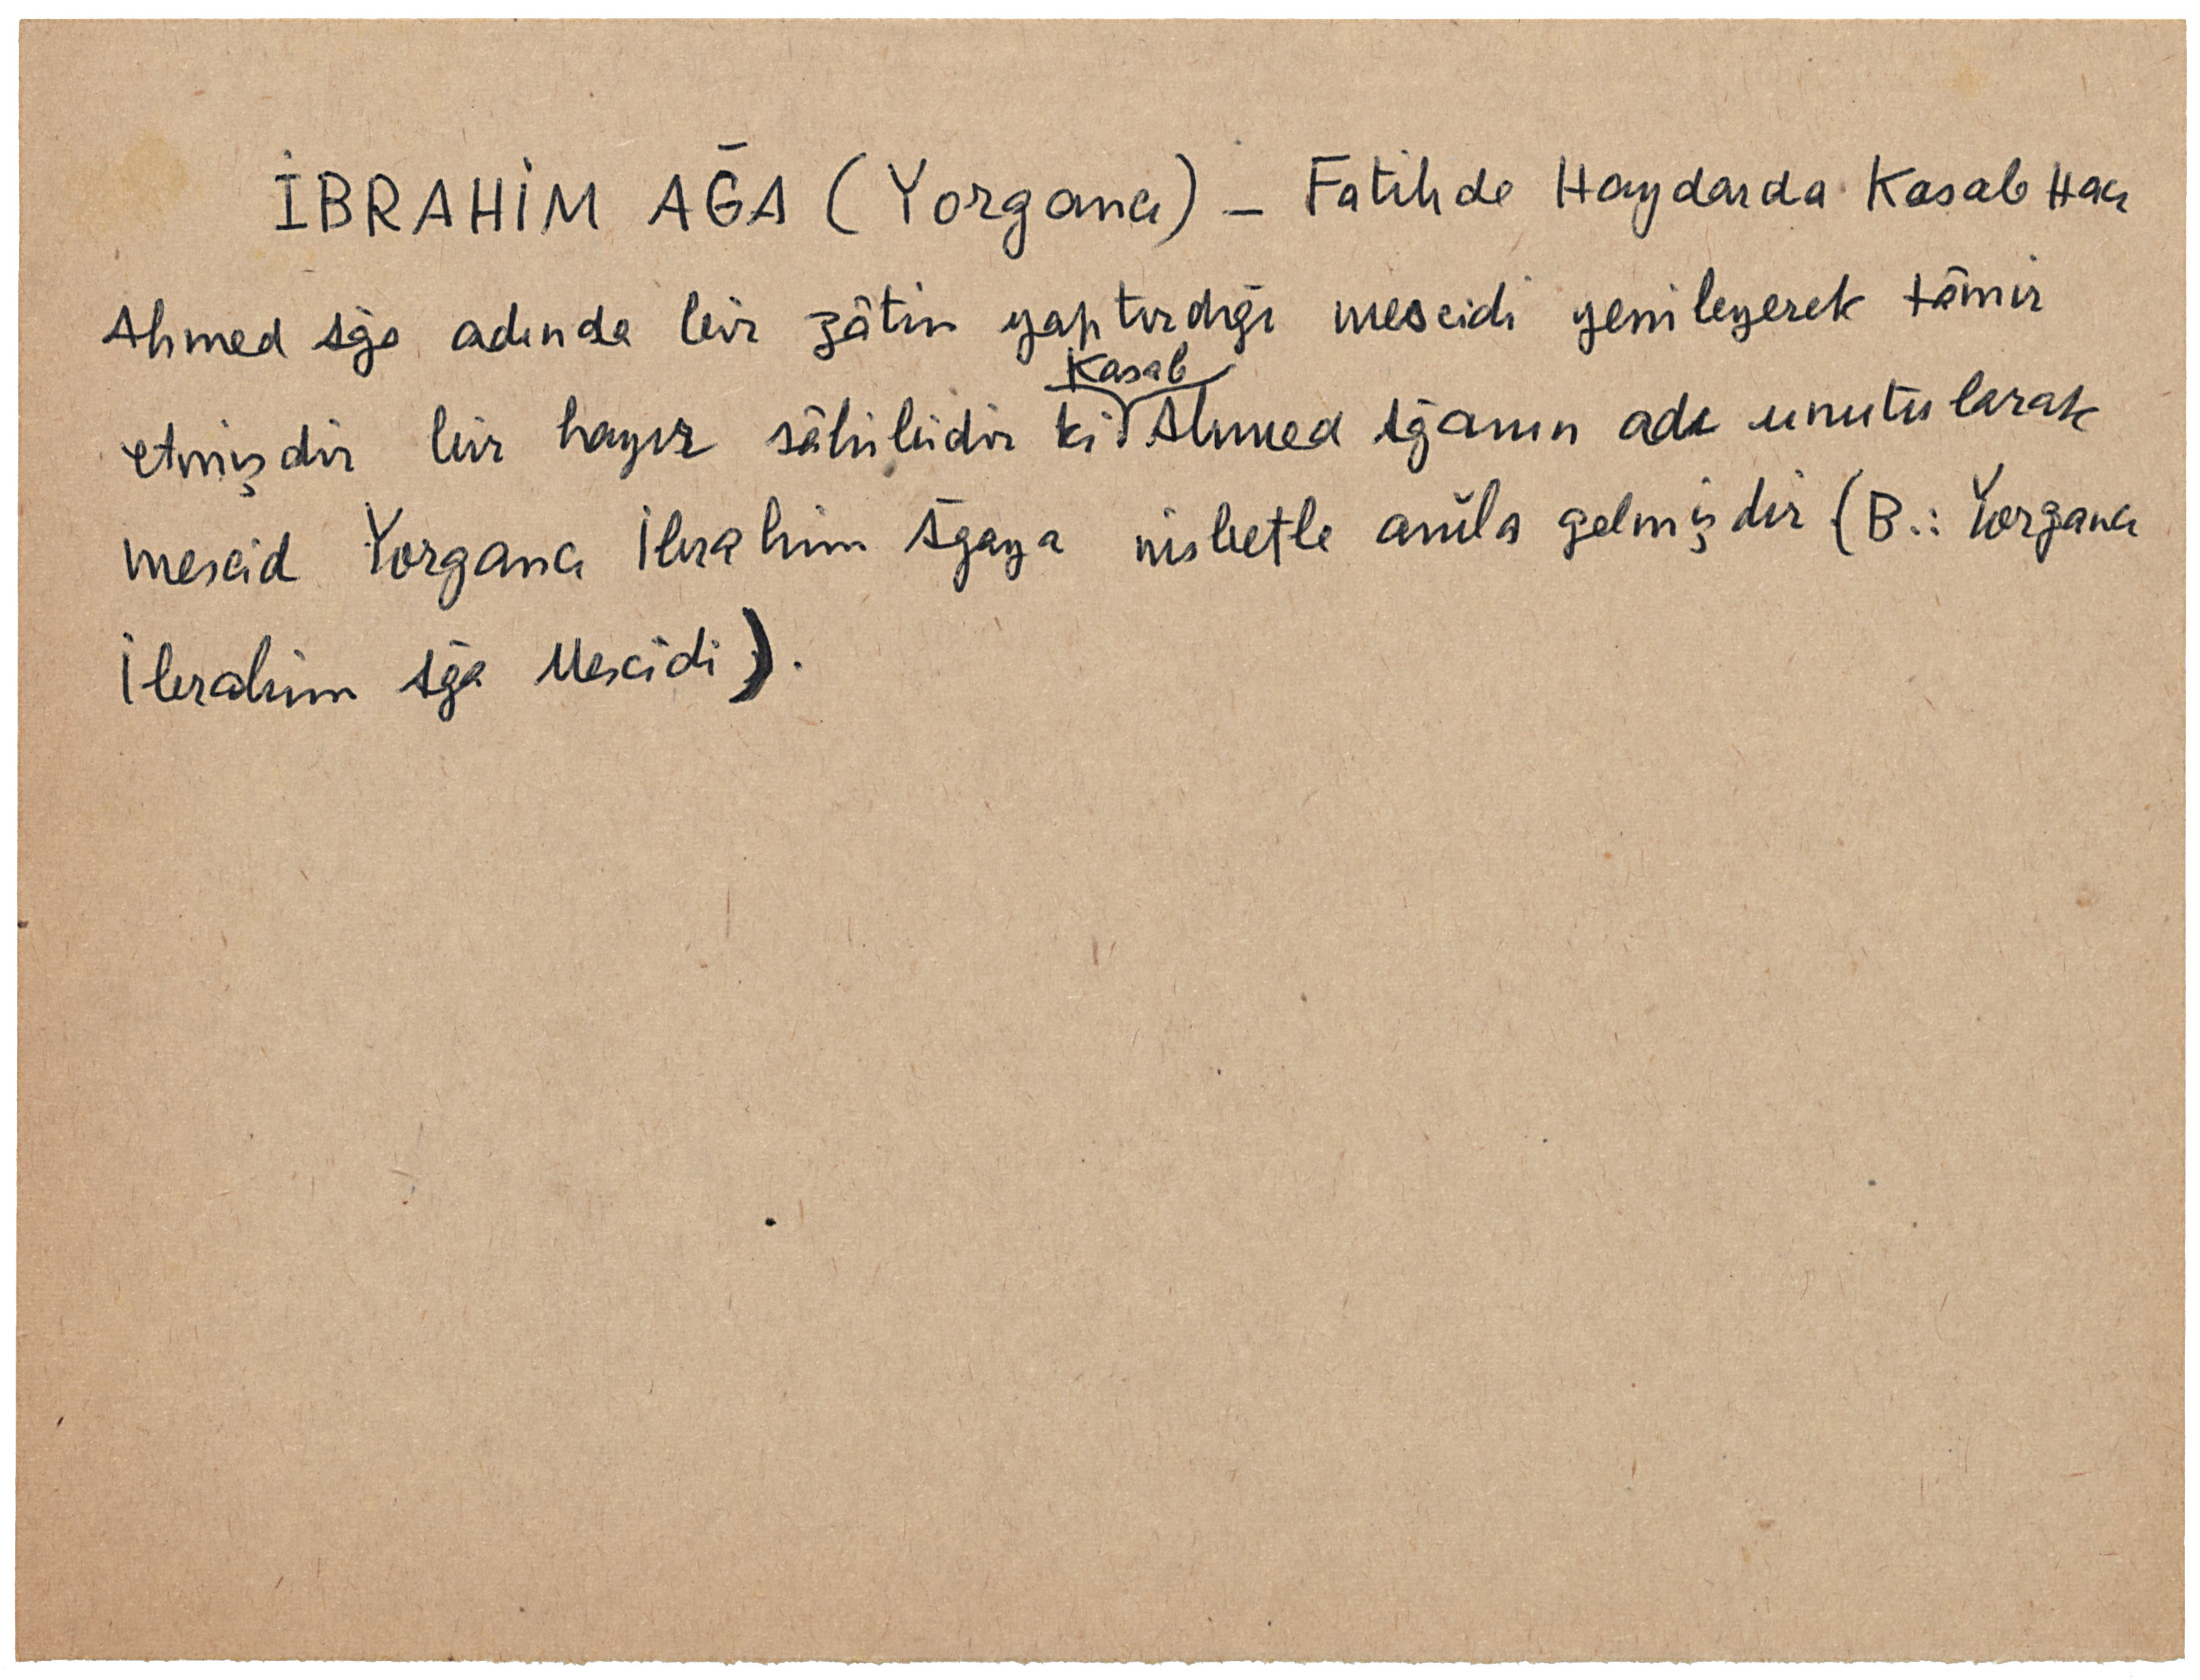 İBRAHİM AĞA (Yorgancı) — Fatihde Haydarda Kasab Hacı
Ahmed Ağa adında bir zâtin yaptırdığı mescidi yenileyerek tâmir
etmişdir bir hayır sâhibidir ki Kasab Ahmed Ağanın adı unutularak
mescid Yorgancı İbrahim Ağaya nisbetle anıla gelmişdir (B.: Yorgancı
İbrahim Ağa Mescidi).